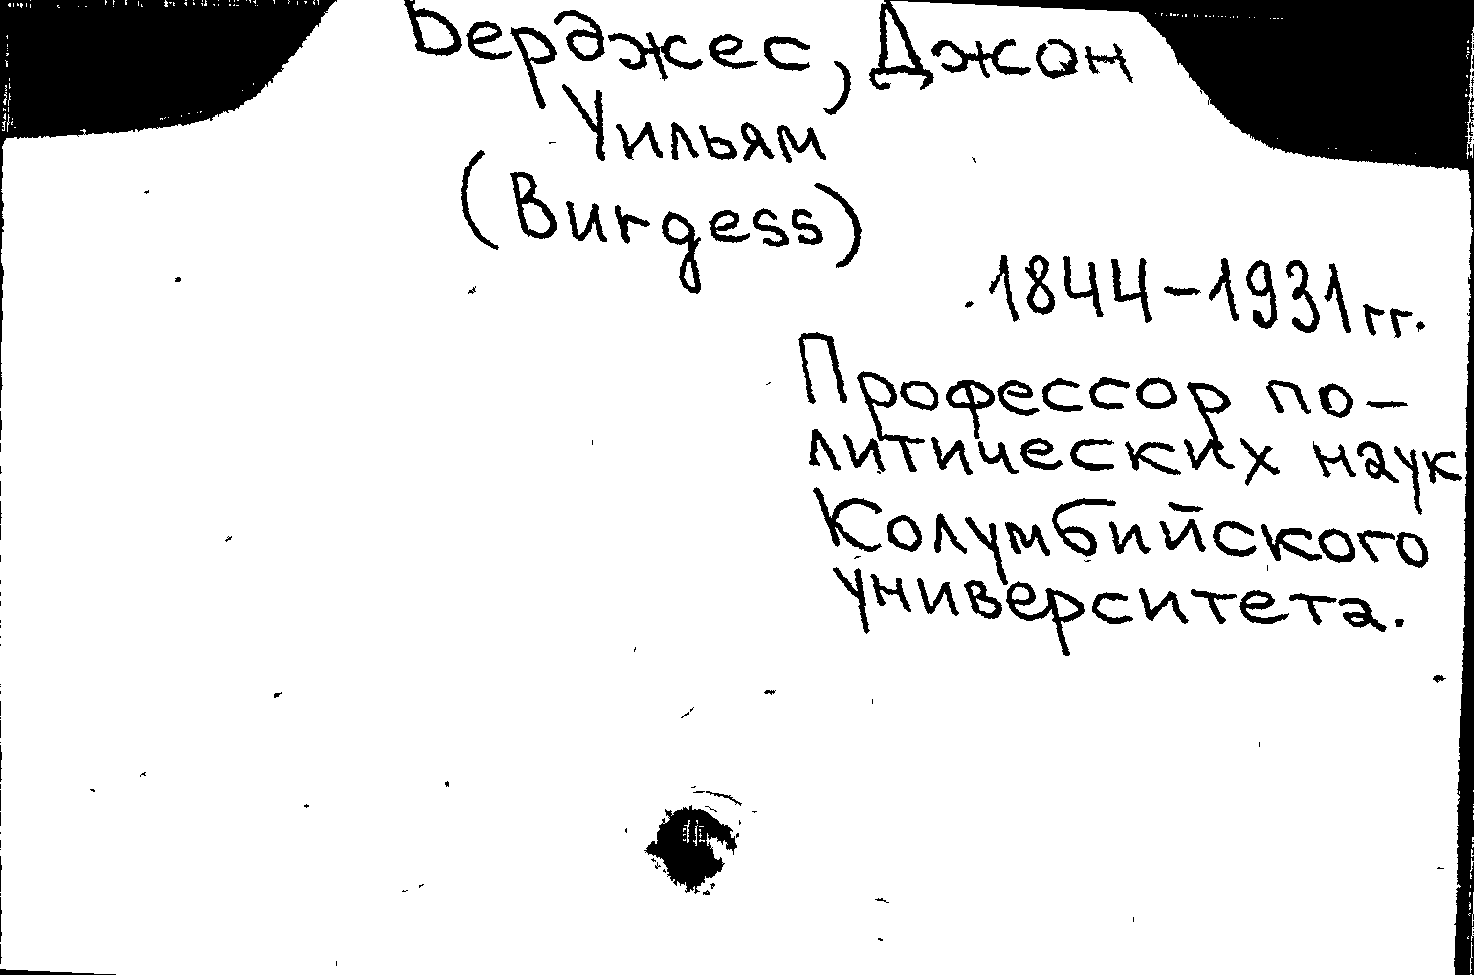 Берджес, Джон
Уильям
(Burgess)
1844-1931 гг.
Профессор по-
литических наук
Колумбийского
университета.